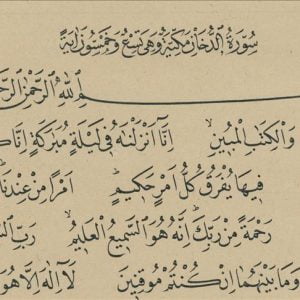 سُورَةُ الدُّخَانِ مَكِّيَّةٌ وَهِيَ تِسْعٌ وَخَمْسُونَ اٰيَةً
مِ اللّٰهِ الرَّحْمٰنِ الرَّحٖ
وَالْكِتَابِ الْمُبٖينِ اِنَّا اَنْزَلْنَاهُ فٖى لَيْلَةٍ مُبَارَكَةٍ اِنَّا كُ
فٖيهَا يُفْرَقُ كُلُّ اَمْرٍ حَكٖيمٍ اَمْرًا مِنْ عِنْدِنَا
رَحْمَةً مِنْ رَبِّكَ اِنَّهُ هُوَ السَّمٖيعُ الْعَلٖيمُ رَبِّ
وَمَا بَيْنَهُمَا اِنْ كُنْتُمْ مُوقِنٖينَ لَا اِلٰهَ اِلَّا هُوَ